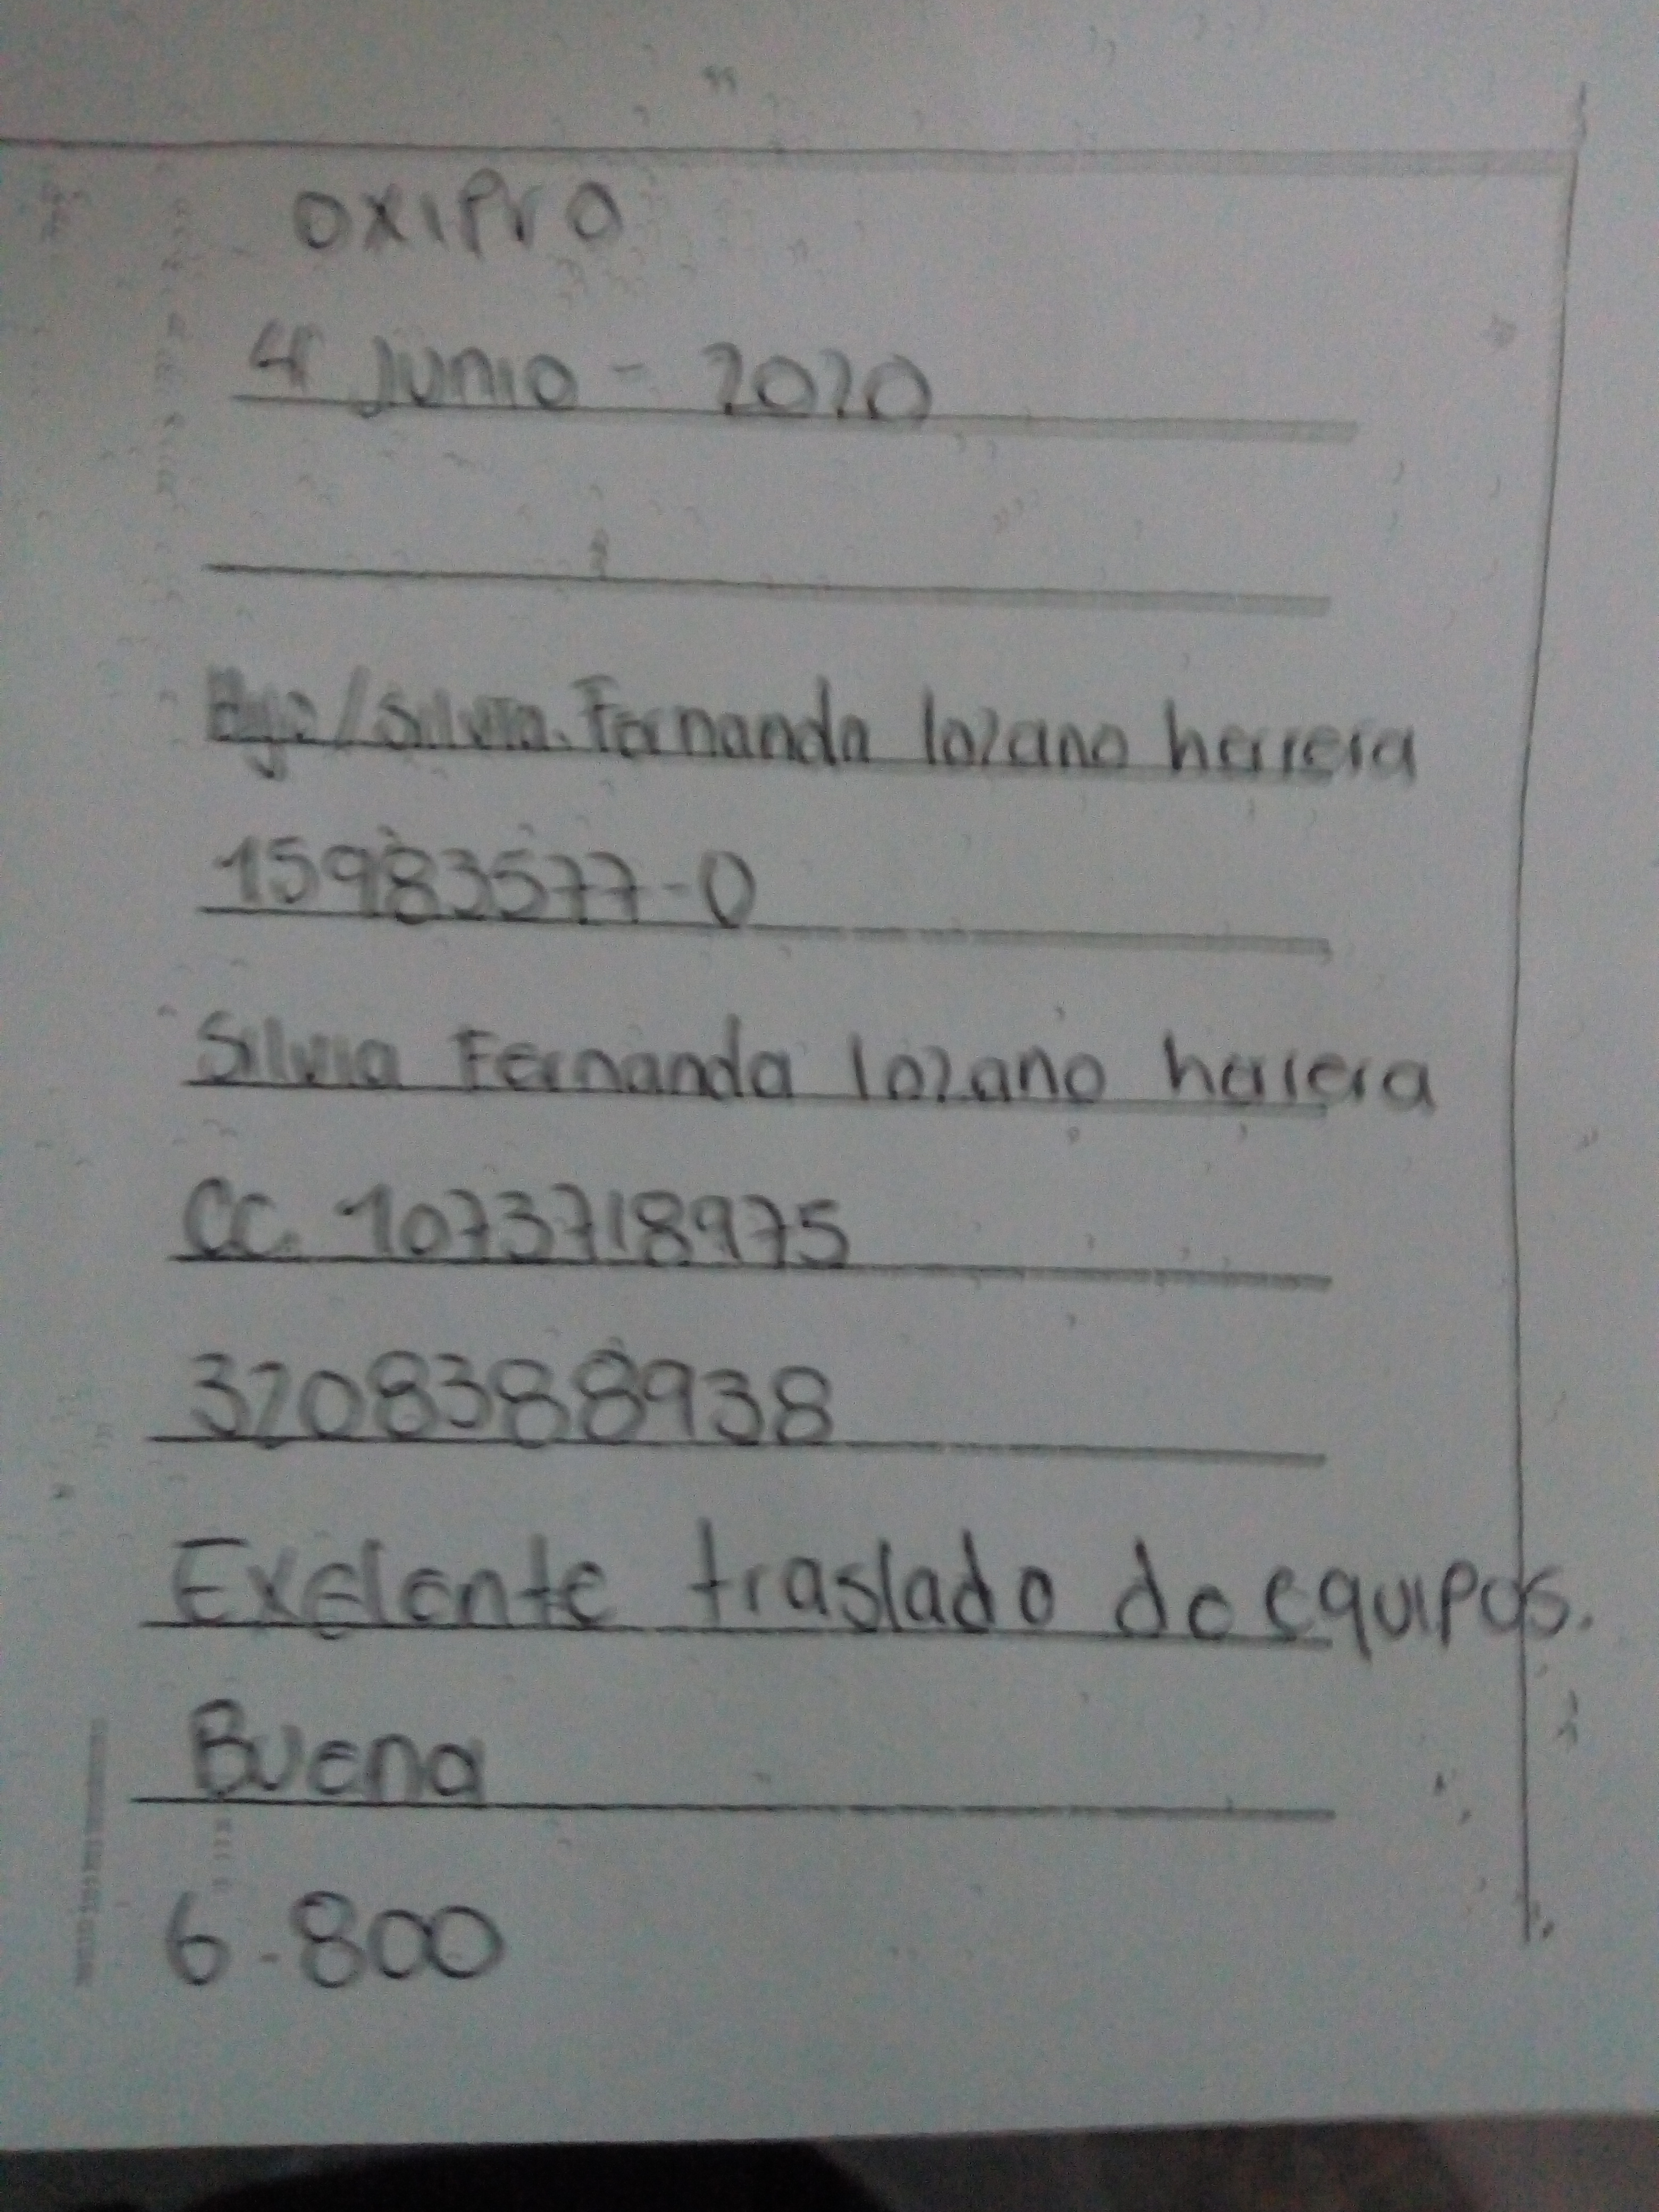 oxipro
4 Junio - 2020
Hijo/Silvia. Fernanda lozano herrera
15983577-0
Silvia Fernanda lozano herrera
CC. 1073718975
3208388938
Exelente traslado de equipos.
Buena
6.800